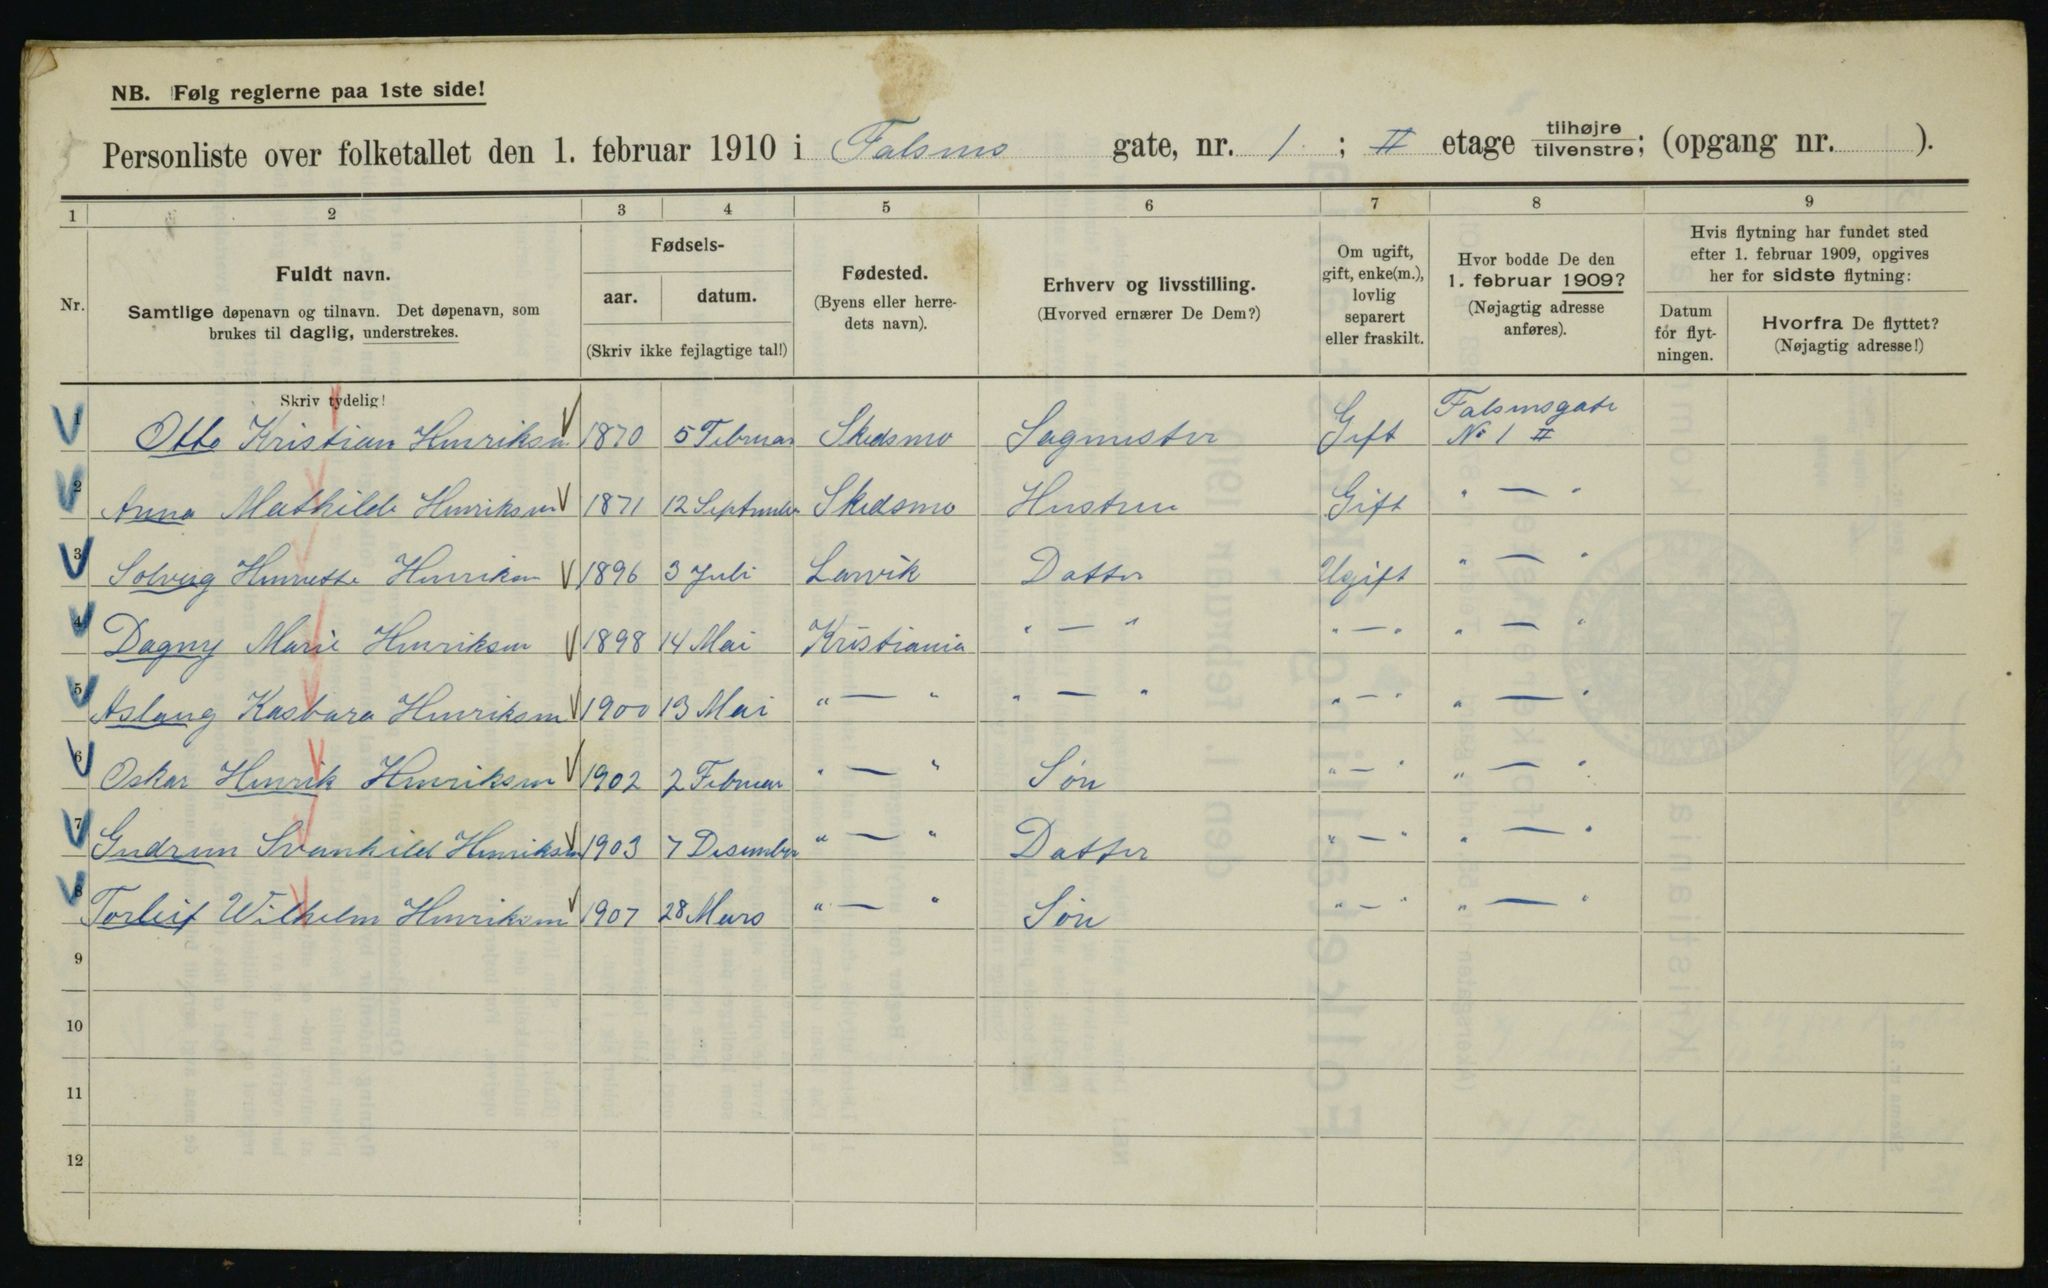 NB. Følg reglerne paa 1ste side!
Personliste over folketallet den 1. februar 1910 i Falsens gate, nr. 1 ; II etage tilhøjre tilvenstre; (opgang nr. ).
1 2 3 4 5 6 7 8 9
Nr.
Fuldt navn.
Samtlige døpenavn og tilnavn. Det døpenavn, som
brukes til daglig, understrekes.
Fødsels-
aar. datum.
(Skriv ikke fejlagtige tal!)
Fødested.
(Byens eller herre-
dets navn).
Erhverv og livsstilling.
(Hvorved ernærer De Dem?)
Om ugift,
gift, enke(m.),
lovlig
separert
eller fraskilt.
Hvor bodde De den
1. februar 1909?
(Nøjagtig adresse
anføres).
Hvis flytning har fundet sted
efter 1. februar 1909, opgives
her for sidste flytning:
Datum
for flyt-
ningen.
Hvorfra De flyttet?
(Nøjagtig adresse!)
Skriv tydelig!
1 Otto Kristian Henriksen 1870 5 Februar Skedsmo Sagmester Gift Falsensgate No 1 II
2 Anna Mathilde Henriksen 1871 12 September Skedsmo Hustru Gift " — "
3 Solveig Henriette Henriksen 1896 3 Juli Larvik Datter Ugift " — "
4 Dagny Marie Henriksen 1898 14 Mai Kristiania " — " " — " " — "
5 Aslaug Kasbara Henriksen 1900 13 Mai " — " " — " " — " " — "
6 Oskar Henrik Henriksen 1902 2 Februar " — " Søn " — " " — "
7 Gudrun Svanhild Henriksen 1903 7 Desember " — " Datter " — " " — "
8 Torleif Wilhelm Henriksen 1907 28 Mars " — " Søn " — " " — "
9
10
11
12